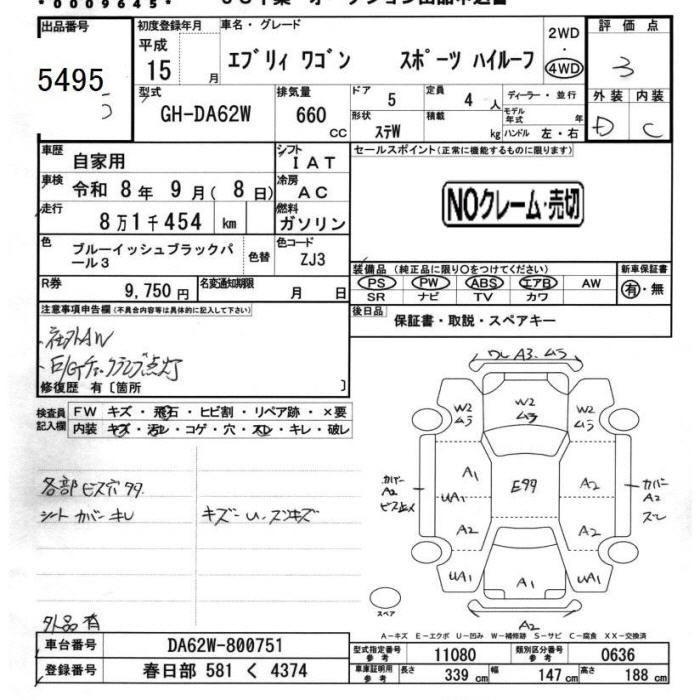 *0009645*
出品番号
5495
初度登録年月
平成
15 月
車名・グレード
エブリィ ワゴン スポーツ ハイルーフ
2WD
・
4WD
評価点
3
外装 内装
D C
型式
GH-DA62W
排気量
660 CC
ドア 5
定員 4 人
形状 ステW
積載 kg
ディーラー・並行
モデル年式 年
ハンドル 左・右
車歴 自家用
シフト IAT
車検 令和 8 年 9 月 ( 8 日)
冷房 AC
走行 8 万 1 千 454 km
燃料 ガソリン
色 ブルーイッシュブラックパール3
色替
色コード ZJ3
R券 9,750 円
名変通知期限 月 日
セールスポイント(正常に機能するものに限ります)
NOクレーム・売切
装備品 (純正品に限り○をつけてください)
PS PW ABS エアB AW
SR ナビ TV カワ
新車保証書
有・無
後日品 保証書・取説・スペアキー
注意事項申告欄(不具合内容等は具体的に記入して下さい)
・社外AW
・E/Gチェックランプ点灯
修復歴 有〔箇所 〕
検査員記入欄
FW キズ・飛石・ヒビ割・リペア跡・×要
内装 キズ・汚レ・コゲ・穴・スレ・キレ・破レ
各部ビス穴 99.
シート カバー キレ
キズー U. ズキズ
外品 有
ワレ A3. ムラ
W2 ムラ
W2 ムラ
W2 ムラ
カバー A2 ビス止メ
A1
UA1
A2
UA1
E99
A2
A2
UA1
カバー A2 ズレ
A1
A2
スペア
A-キズ E-エクボ U-凹み W-補修跡 S-サビ C-腐食 XX-交換済
車台番号 DA62W-800751
登録番号 春日部 581 く 4374
型式指定番号 参考 11080
類別区分番号 参考 0636
車庫証明用 参考 長さ 339 cm 幅 147 cm 高さ 188 cm